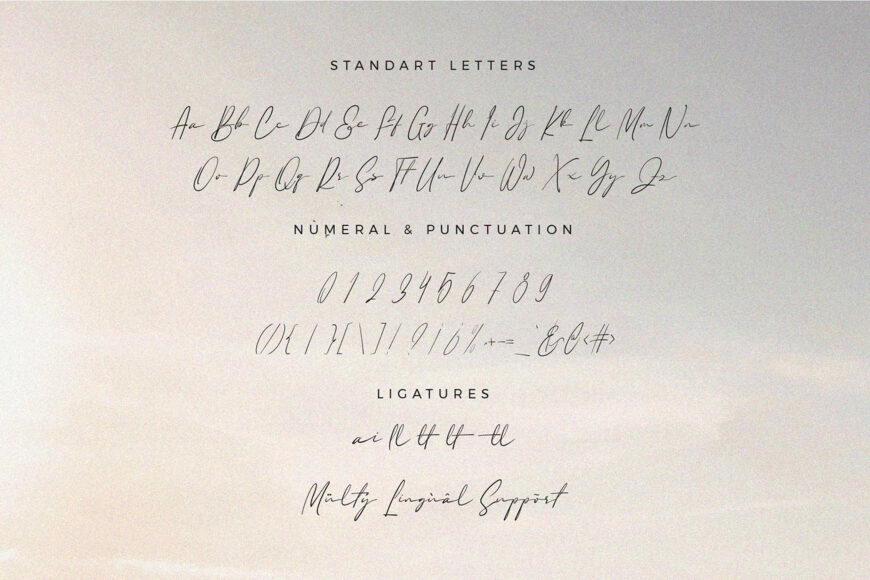 STANDART LETTERS
Aa Bb Cc Dd Ee Ff Gg Hh Ii Jj Kk Ll Mm Nn
Oo Pp Qq Rr Ss Tt Uu Vv Ww Xx Yy Zz
NUMERAL & PUNCTUATION
0 1 2 3 4 5 6 7 8 9
(/){ | }[ \ ] ! ? ¡ % +-= _ & @ < # >
LIGATURES
ai ll tt lt tl
Mülty Lingùâl Suppört